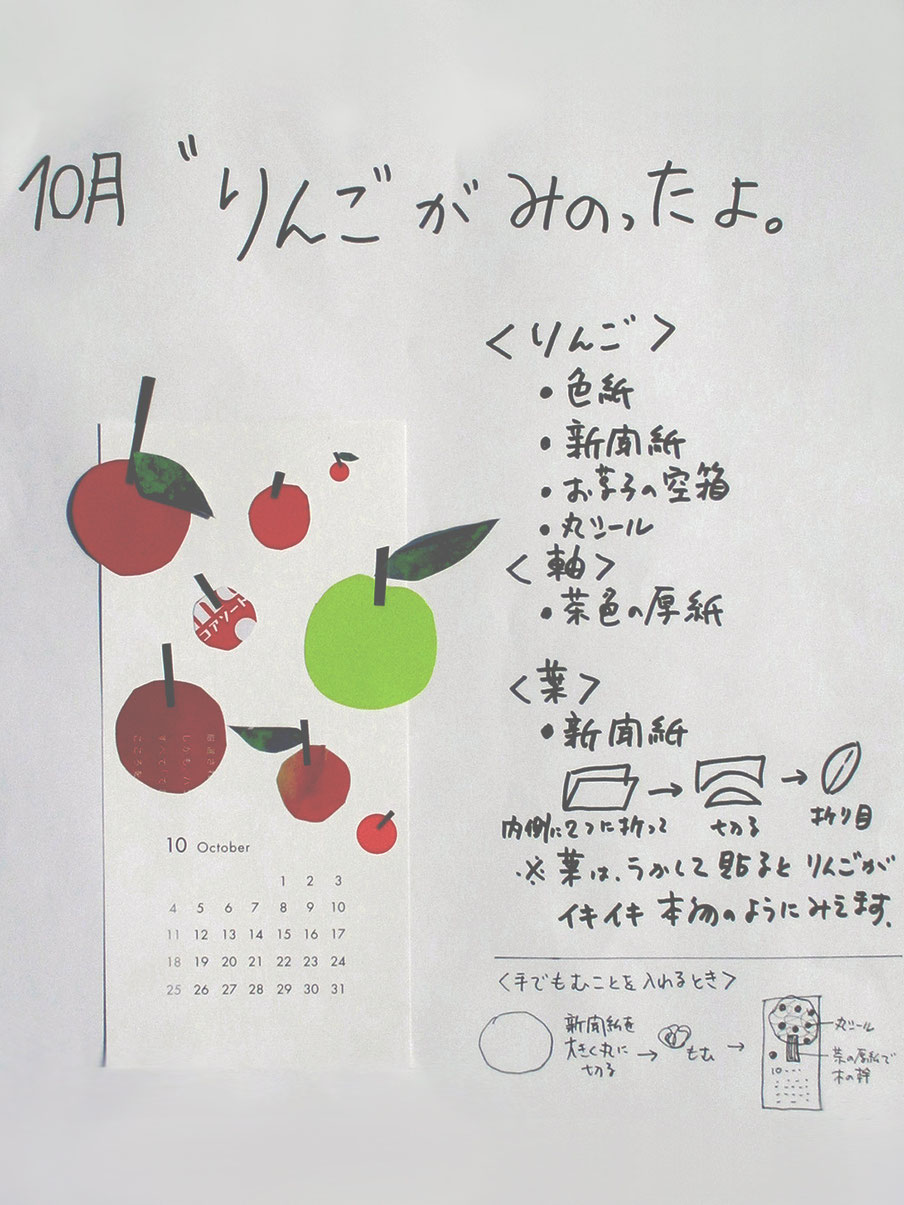 10月 〝りんごがみのったよ。
<りんご>
・色紙
・新聞紙
・お菓子の空箱
・丸シール
<軸>
・茶色の厚紙
<葉>
・新聞紙
内側に2つに折って → 切る → 折り目
※葉は、うかして貼るとりんごが
イキイキ本物のようにみえます。
<手でもむことを入れるとき>
新聞紙を
大きく丸に
切る
→ もむ →
丸シール
茶の厚紙で
木の幹
10
コアソート
10 October
1 2 3
4 5 6 7 8 9 10
11 12 13 14 15 16 17
18 19 20 21 22 23 24
25 26 27 28 29 30 31